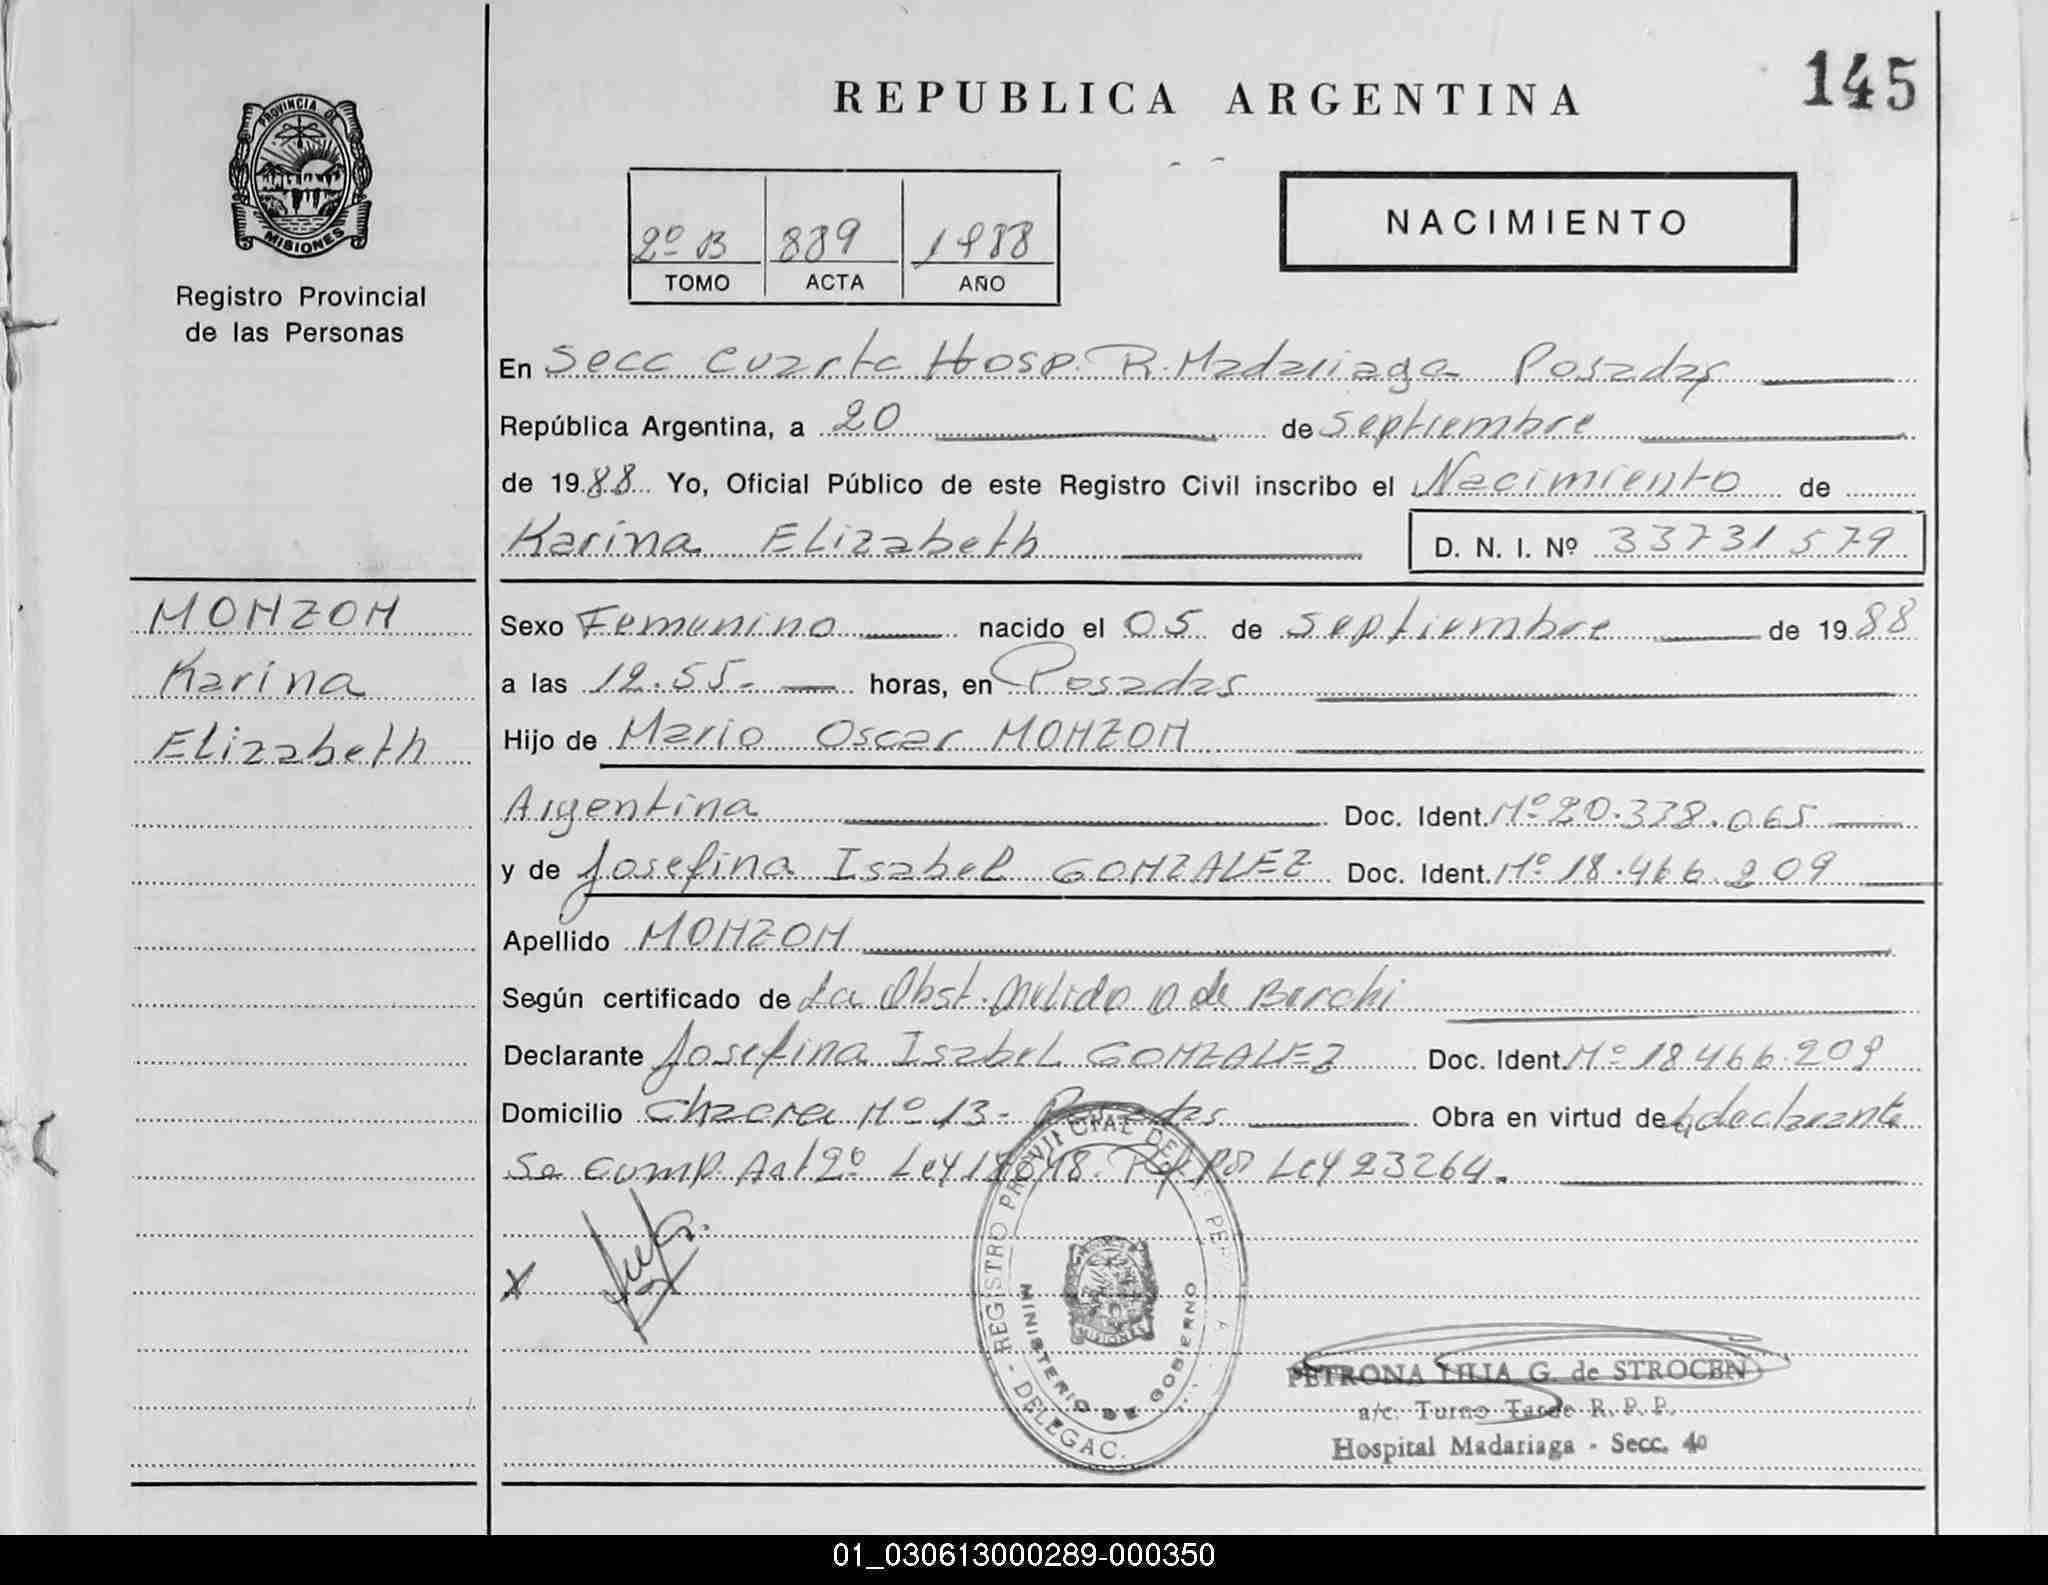 145
REPUBLICA ARGENTINA
PROVINCIA DE
MISIONES
Registro Provincial
de las Personas
NACIMIENTO
2º B 889 1988
TOMO ACTA AÑO
En Secc Cuarta Hosp. R. Madariaga Posadas
República Argentina, a 20 de Septiembre
de 1988 Yo, Oficial Público de este Registro Civil inscribo el Nacimiento de
Karina Elizabeth D. N. I. Nº 33731579
MONZON
Karina
Elizabeth
Sexo Femenino nacido el 05 de Septiembre de 1988
a las 12.55.- horas, en Posadas
Hijo de Mario Oscar MONZON
Argentina Doc. Ident. Nº 20.338.065
y de Josefina Isabel GONZALEZ Doc. Ident. Nº 18.466.209
Apellido MONZON
Según certificado de La Obst. de
Declarante Josefina Isabel GONZALEZ Doc. Ident. Nº 18.466.209
Domicilio Chacra Nº 13- Posadas Obra en virtud de declarante
Se Comp. Art 2º Ley Ley 23264.
x
REGISTRO PROVINCIAL DE
MINISTERIO DE GOBIERNO
MISIONES
DELEGAC.
PETRONA LILIA G. de STROCEN
a/c. Turno Tarde R. P. P.
Hospital Madariaga - Secc. 4º
01_030613000289-000350